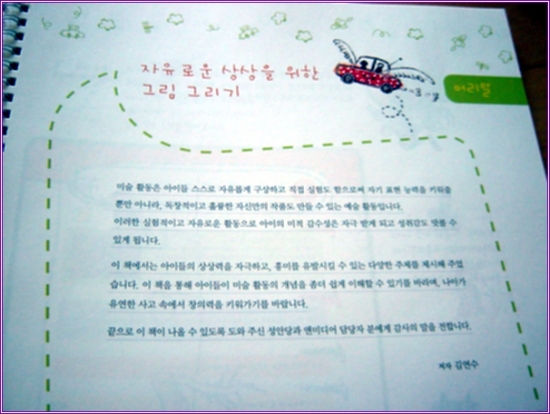 자유로운 상상을 위한
그림 그리기
머리말
미술 활동은 아이들 스스로 자유롭게 구상하고 직접 실험도 함으로써 자기 표현 능력을 키워줄
뿐만 아니라, 독창적이고 훌륭한 자신만의 작품도 만들 수 있는 예술 활동입니다.
이러한 실험적이고 자유로운 활동으로 아이의 미적 감수성은 자극 받게 되고 성취감도 맛볼 수
있게 됩니다.
이 책에서는 아이들의 상상력을 자극하고, 흥미를 유발시킬 수 있는 다양한 주제를 제시해 주었
습니다. 이 책을 통해 아이들이 미술 활동의 개념을 좀더 쉽게 이해할 수 있기를 바라며, 나아가
유연한 사고 속에서 창의력을 키워가기를 바랍니다.
끝으로 이 책이 나올 수 있도록 도와 주신 성안당과 앤미디어 담당자 분에게 감사의 말을 전합니다.
저자 김연수